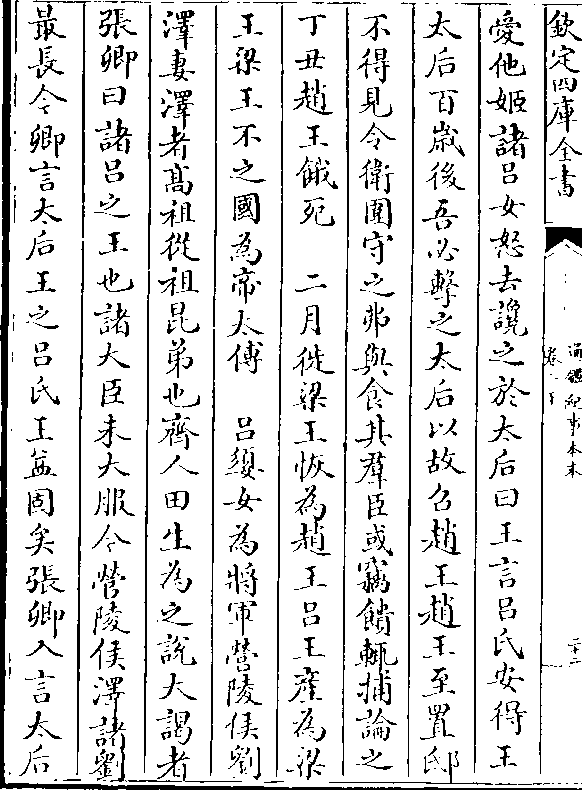 欽定四庫全書
通鑑紀事本末
愛他姬諸吕女怒去讒之於太后曰王言吕氏安得王
太后百嵗後吾必擊之太后以故召趙王趙王至置邸
不得見令衛圍守之弗與食其羣臣或竊饋輒捕論之
丁丑趙王餓死 二月徙梁王恢為趙王吕王産為梁
王梁王不之國為帝太傅 吕嬃女為將軍營陵侯劉
澤妻澤者髙祖從祖昆弟也齊人田生為之說大謁者
張卿曰諸吕之王也諸大臣未大服今營陵侯澤諸劉
最長今卿言太后王之吕氏王益固矣張卿入言太后